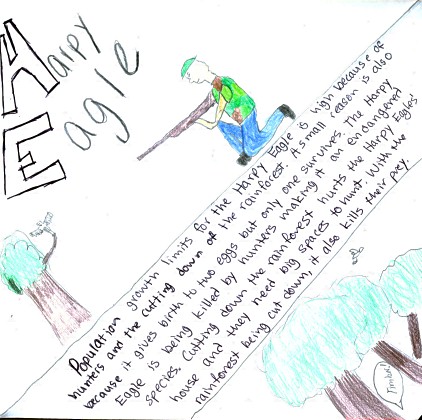 Harpy
Eagle
Population growth limits for the Harpy Eagle is high because of
hunters and the cutting down of the rainforest. It small reason is also
because it gives birth to two eggs but only one survives. The Harpy
Eagle is being killed by hunters making it an endangered
species. Cutting down the rainforest hurts the Harpy Eagles'
house and they need big spaces to hunt. With the
rainforest being cut down, it also kills their prey.
Timber!